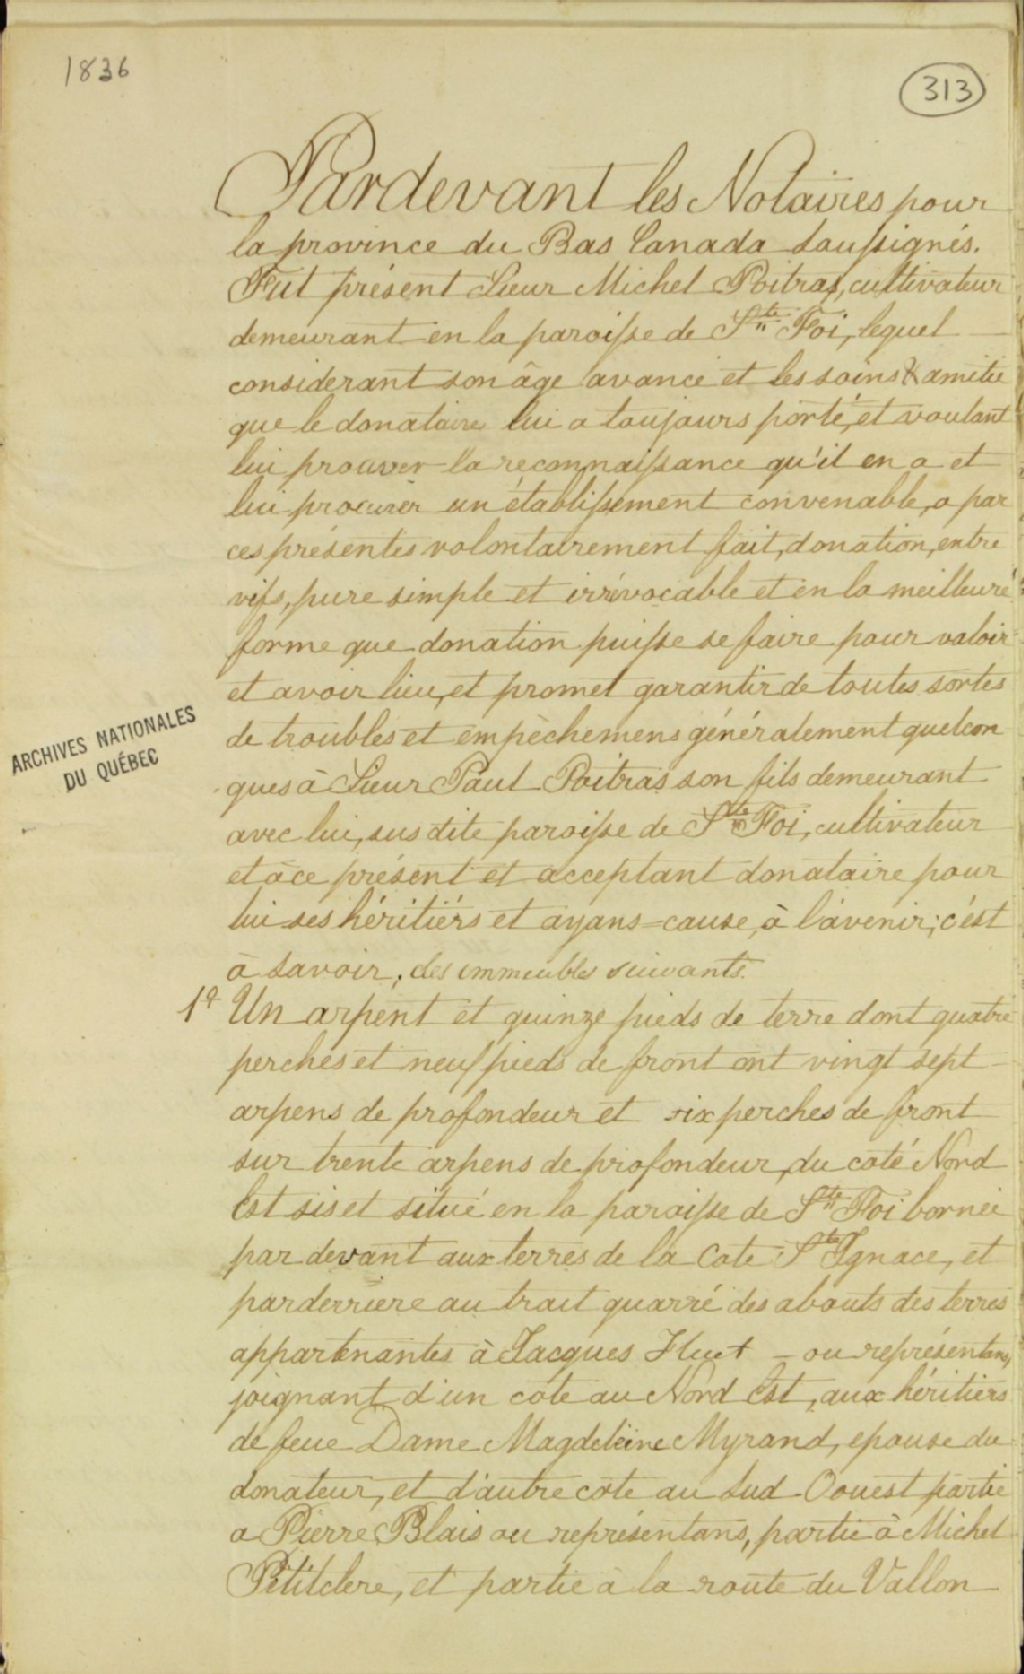 1836
313
Pardevant les Notaires pour
la province du Bas Canada Soussignés.
Fut présent Sieur Michel Poitras, cultivateur
demeurant en la paroisse de Ste Foi, lequel
considerant son âge avancé et les soins & amitie
que le donataire lui a toujours porté, et voulant
lui prouver la reconnaissance qu'il en a et
lui procurer un établissement convenable, a par
ces présentes volontairement fait, donation, entre
vifs, pure simple et irrévocable et en la meilleure
forme que donation puisse se faire pour valoir
et avoir lieu, et promet garantir de toutes sortes
de troubles et empèchemens généralement quelcon
ques à Sieur Paul Poitras son fils demeurant
avec lui, susdite paroisse de Ste Foi, cultivateur
et à ce présent et acceptant donataire pour
lui ses héritiérs et ayans=cause, à l'avenir; c'ést
à savoir; des immeubles suivants.
1o Un arpent et quinze pieds de terre dont quatre
perches et neuf pieds de front ont vingt sept
arpens de profondeur et six perches de front
sur trente arpens de profondeur, du coté Nord
Est sis et situé en la paroisse de Ste Foi bornée
par devant aux terres de la Cote St Ignace, et
parderriere au trait quarré des abouts des terres
appartenantes à Jacques Huot - ou représentans,
joignant d'un côte au Nord Est, aux héritiers
de feue Dame Magdeleine Myrand, epouse du
donateur, et d'autre côte au Sud-Ouest partie
a Pierre Blais ou représentans, partie à Michel
Petitclerc, et partie à la route du Vallon
ARCHIVES NATIONALES
DU QUÉBEC